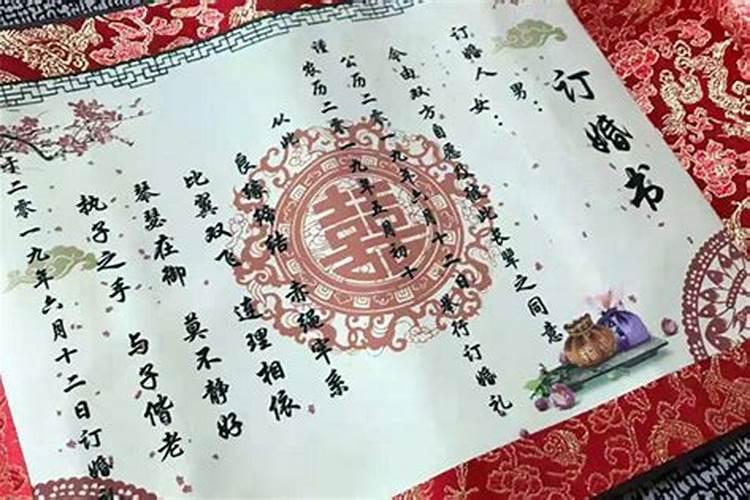 订婚书
订婚人 男：
女：
今由双方自愿及 彼此长辈之同意
公历二零一九年六月十二日举行订婚礼
谨 农历二零一九年五月初十
从此
良缘缔结 赤绳牢系
比翼双飞 连理相依
琴瑟在御 莫不静好
执子之手 与子偕老
于二零一九年六月十二日订婚